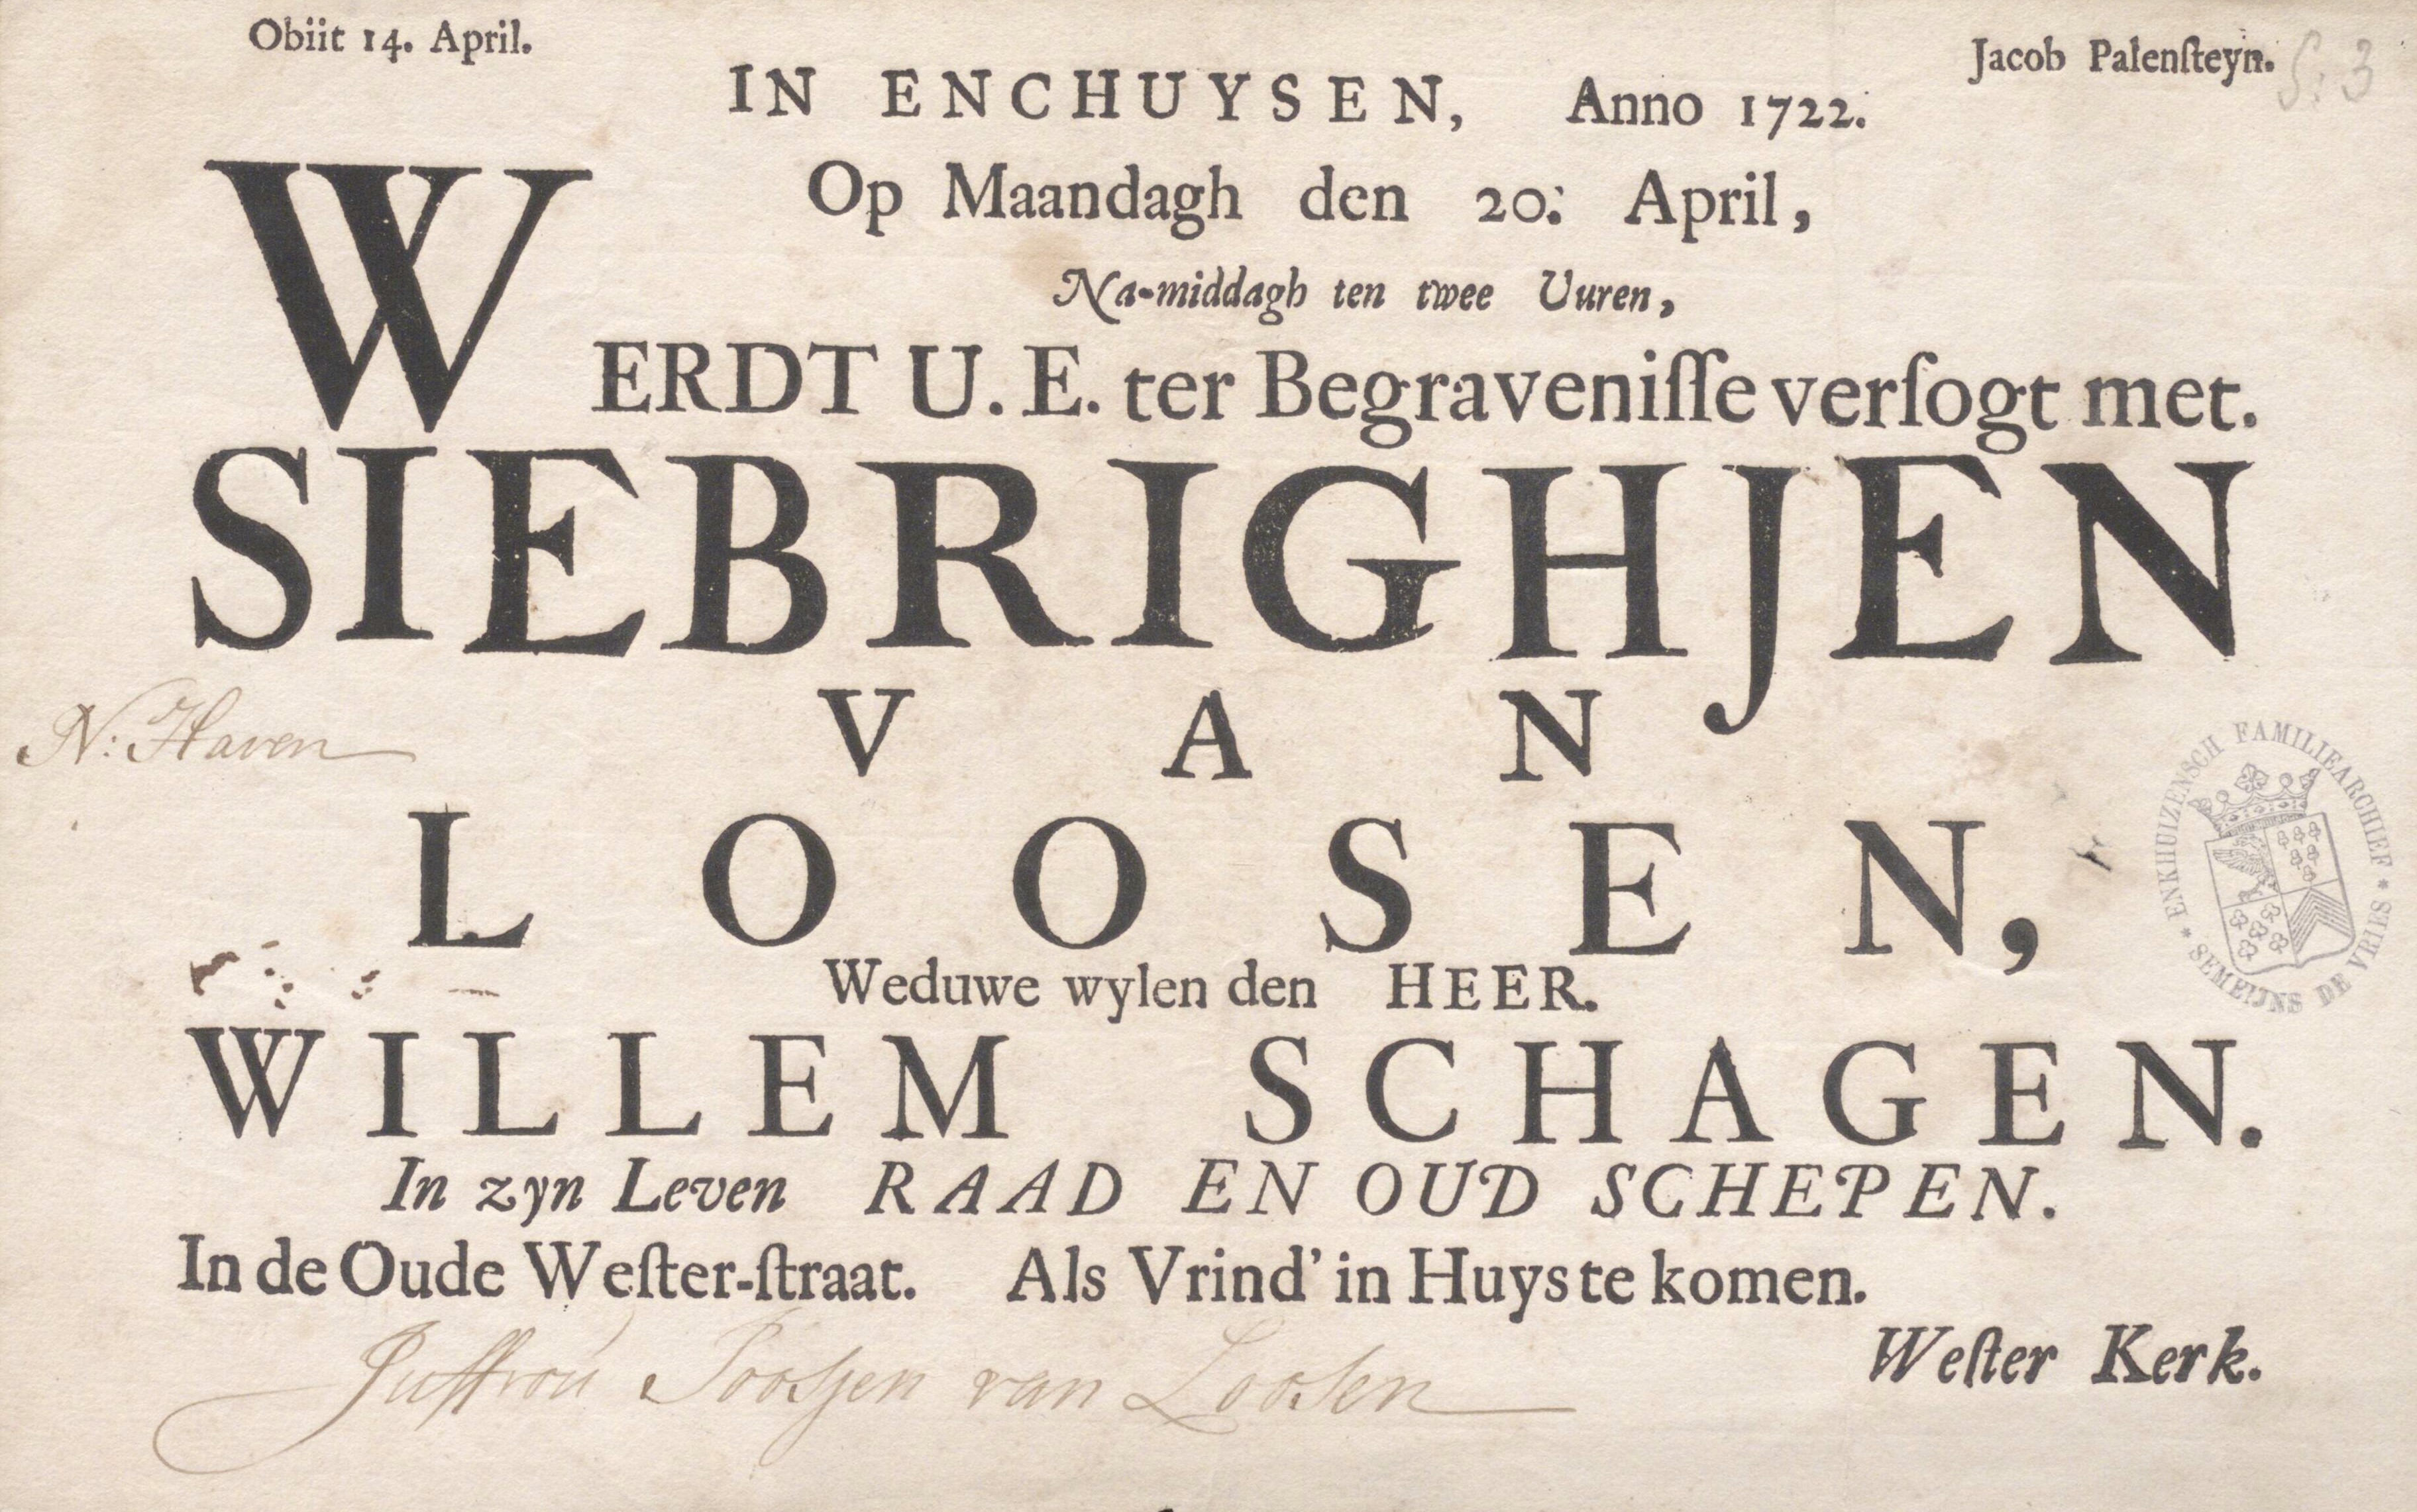 Obiit 14. April.
Jacob Palenſteyn.
S: 3
IN ENCHUYSEN, Anno 1722.
Op Maandagh den 20. April,
Na-middagh ten twee Uuren,
WERDT U. E. ter Begraveniſſe verſogt met.
SIEBRIGHJEN
VAN
N: Haven
LOOSEN,
ENKHUIZENSCH FAMILIEARCHIEF * SEMEIJNS DE VRIES *
Weduwe wylen den HEER.
WILLEM SCHAGEN.
In zyn Leven RAAD EN OUD SCHEPEN.
In de Oude Weſter-ſtraat. Als Vrind' in Huys te komen.
Weſter Kerk.
Juffrou van Loosen